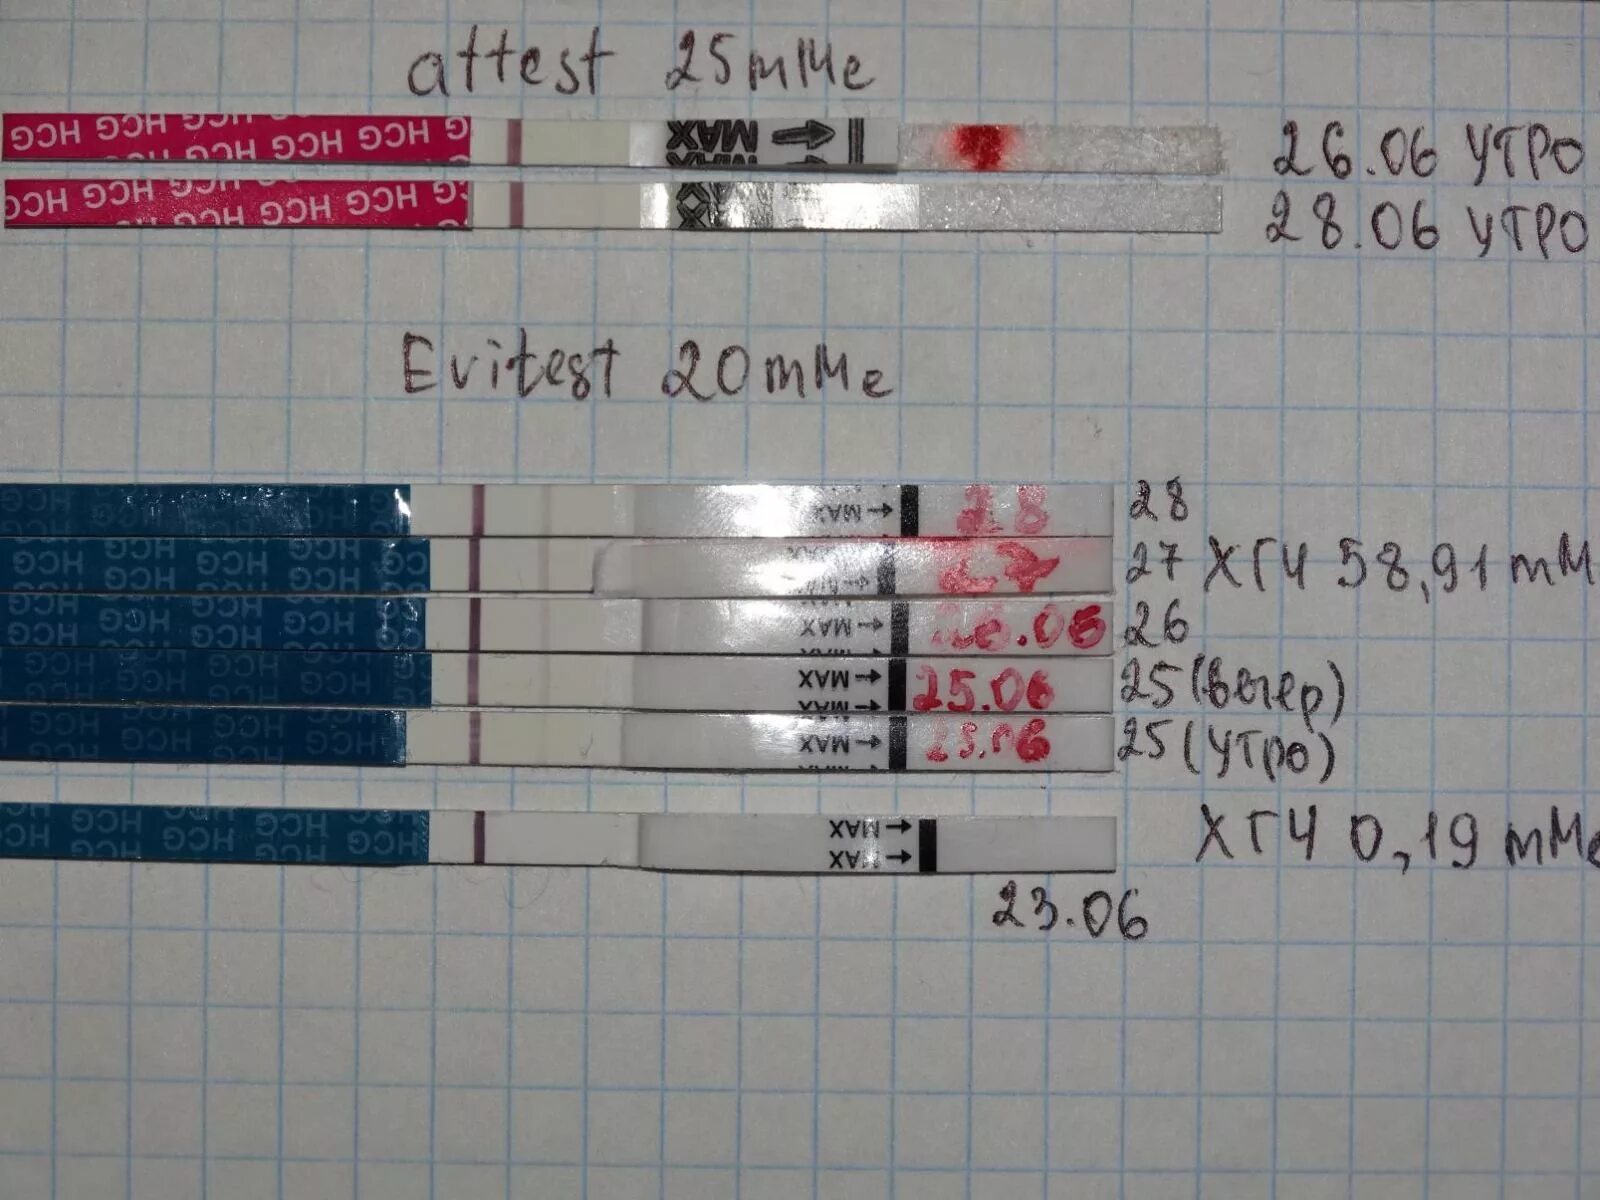 attest 25mMe
HCG HCG HCG HCG HCG HCG MAX 26.06 УТРО
HCG HCG HCG HCG HCG 28.06 УТРО
Evitest 20mMe
HCG HCG HCG HCG MAX 28 28
HCG HCG HCG HCG 27 27 ХГЧ 58,91 mM
HCG HCG HCG HCG MAX 26.06 26
HCG HCG HCG HCG MAX 25.06 25 (вечер)
HCG HCG HCG HCG MAX 25.06 25 (утро)
HCG HCG HCG HCG MAX ХГЧ 0,19 mMe
HCG HCG HCG HCG MAX
23.06